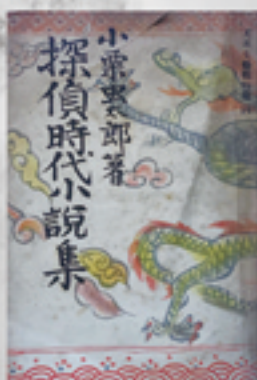 小栗虫太郎著
探偵時代小説集